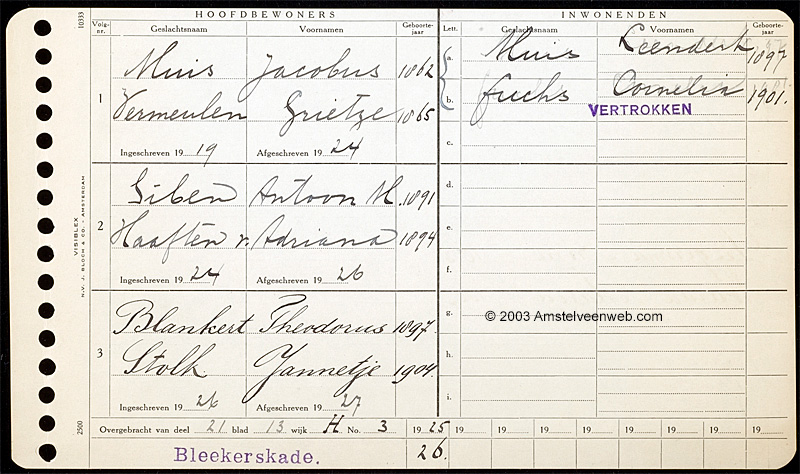 HOOFDBEWONERS
INWONENDEN
10333
Volg-nr.
Geslachtsnaam
Voornamen
Geboorte-jaar
Lett.
Geslachtsnaam
Voornamen
Geboorte-jaar
1
Muis Jacobus 1862
Vermeulen Grietje 1865
Ingeschreven 19 19 Afgeschreven 19 24
a. Muis Leendert 1897
b. Fuchs Cornelia 1901.
VERTROKKEN
c.
2
Giben Antoon M. 1891
Haaften v. Adriana 1894
Ingeschreven 19 24 Afgeschreven 19 26
d.
e.
f.
3
Blankert Theodorus 1897.
Stolk Jannetje 1904.
Ingeschreven 19 26 Afgeschreven 19 27
g.
© 2003 Amstelveenweb.com
h.
i.
VISIBLEX
N.V. J. BLOCH & CO. - AMSTERDAM
2500
Overgebracht van deel 21 blad 13 wijk H No. 3 19 25 19 19 19 19 19 19 19 19
Bleekerskade. 26.